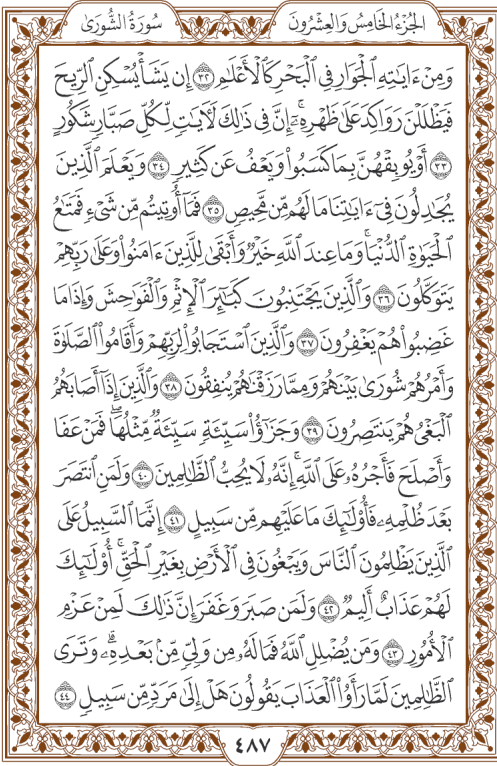 الجُزْءُ الخَامِسُ وَالعِشْرُونَ
سُورَةُ الشُّورَىٰ
وَمِنْ ءَايَٰتِهِ ٱلْجَوَارِ فِى ٱلْبَحْرِ كَٱلْأَعْلَٰمِ ٣٢ إِن يَشَأْ يُسْكِنِ ٱلرِّيحَ
فَيَظْلَلْنَ رَوَاكِدَ عَلَىٰ ظَهْرِهِۦٓ ۚ إِنَّ فِى ذَٰلِكَ لَءَايَٰتٍ لِّكُلِّ صَبَّارٍ شَكُورٍ
٣٣ أَوْ يُوبِقْهُنَّ بِمَا كَسَبُوا۟ وَيَعْفُ عَن كَثِيرٍ ٣٤ وَيَعْلَمَ ٱلَّذِينَ
يُجَٰدِلُونَ فِىٓ ءَايَٰتِنَا مَا لَهُم مِّن مَّحِيصٍ ٣٥ فَمَآ أُوتِيتُم مِّن شَىْءٍ فَمَتَٰعُ
ٱلْحَيَوٰةِ ٱلدُّنْيَا ۖ وَمَا عِندَ ٱللَّهِ خَيْرٌ وَأَبْقَىٰ لِلَّذِينَ ءَامَنُوا۟ وَعَلَىٰ رَبِّهِمْ
يَتَوَكَّلُونَ ٣٦ وَٱلَّذِينَ يَجْتَنِبُونَ كَبَٰٓئِرَ ٱلْإِثْمِ وَٱلْفَوَٰحِشَ وَإِذَا مَا
غَضِبُوا۟ هُمْ يَغْفِرُونَ ٣٧ وَٱلَّذِينَ ٱسْتَجَابُوا۟ لِرَبِّهِمْ وَأَقَامُوا۟ ٱلصَّلَوٰةَ
وَأَمْرُهُمْ شُورَىٰ بَيْنَهُمْ وَمِمَّا رَزَقْنَٰهُمْ يُنفِقُونَ ٣٨ وَٱلَّذِينَ إِذَآ أَصَابَهُمُ
ٱلْبَغْىُ هُمْ يَنتَصِرُونَ ٣٩ وَجَزَٰٓؤُا۟ سَيِّئَةٍ سَيِّئَةٌ مِّثْلُهَا ۖ فَمَنْ عَفَا
وَأَصْلَحَ فَأَجْرُهُۥ عَلَى ٱللَّهِ ۚ إِنَّهُۥ لَا يُحِبُّ ٱلظَّٰلِمِينَ ٤٠ وَلَمَنِ ٱنتَصَرَ
بَعْدَ ظُلْمِهِۦ فَأُو۟لَٰٓئِكَ مَا عَلَيْهِم مِّن سَبِيلٍ ٤١ إِنَّمَا ٱلسَّبِيلُ عَلَى
ٱلَّذِينَ يَظْلِمُونَ ٱلنَّاسَ وَيَبْغُونَ فِى ٱلْأَرْضِ بِغَيْرِ ٱلْحَقِّ ۚ أُو۟لَٰٓئِكَ
لَهُمْ عَذَابٌ أَلِيمٌ ٤٢ وَلَمَن صَبَرَ وَغَفَرَ إِنَّ ذَٰلِكَ لَمِنْ عَزْمِ
ٱلْأُمُورِ ٤٣ وَمَن يُضْلِلِ ٱللَّهُ فَمَا لَهُۥ مِن وَلِىٍّ مِّنۢ بَعْدِهِۦ ۗ وَتَرَى
ٱلظَّٰلِمِينَ لَمَّا رَأَوُا۟ ٱلْعَذَابَ يَقُولُونَ هَلْ إِلَىٰ مَرَدٍّ مِّن سَبِيلٍ ٤٤
٤٨٧